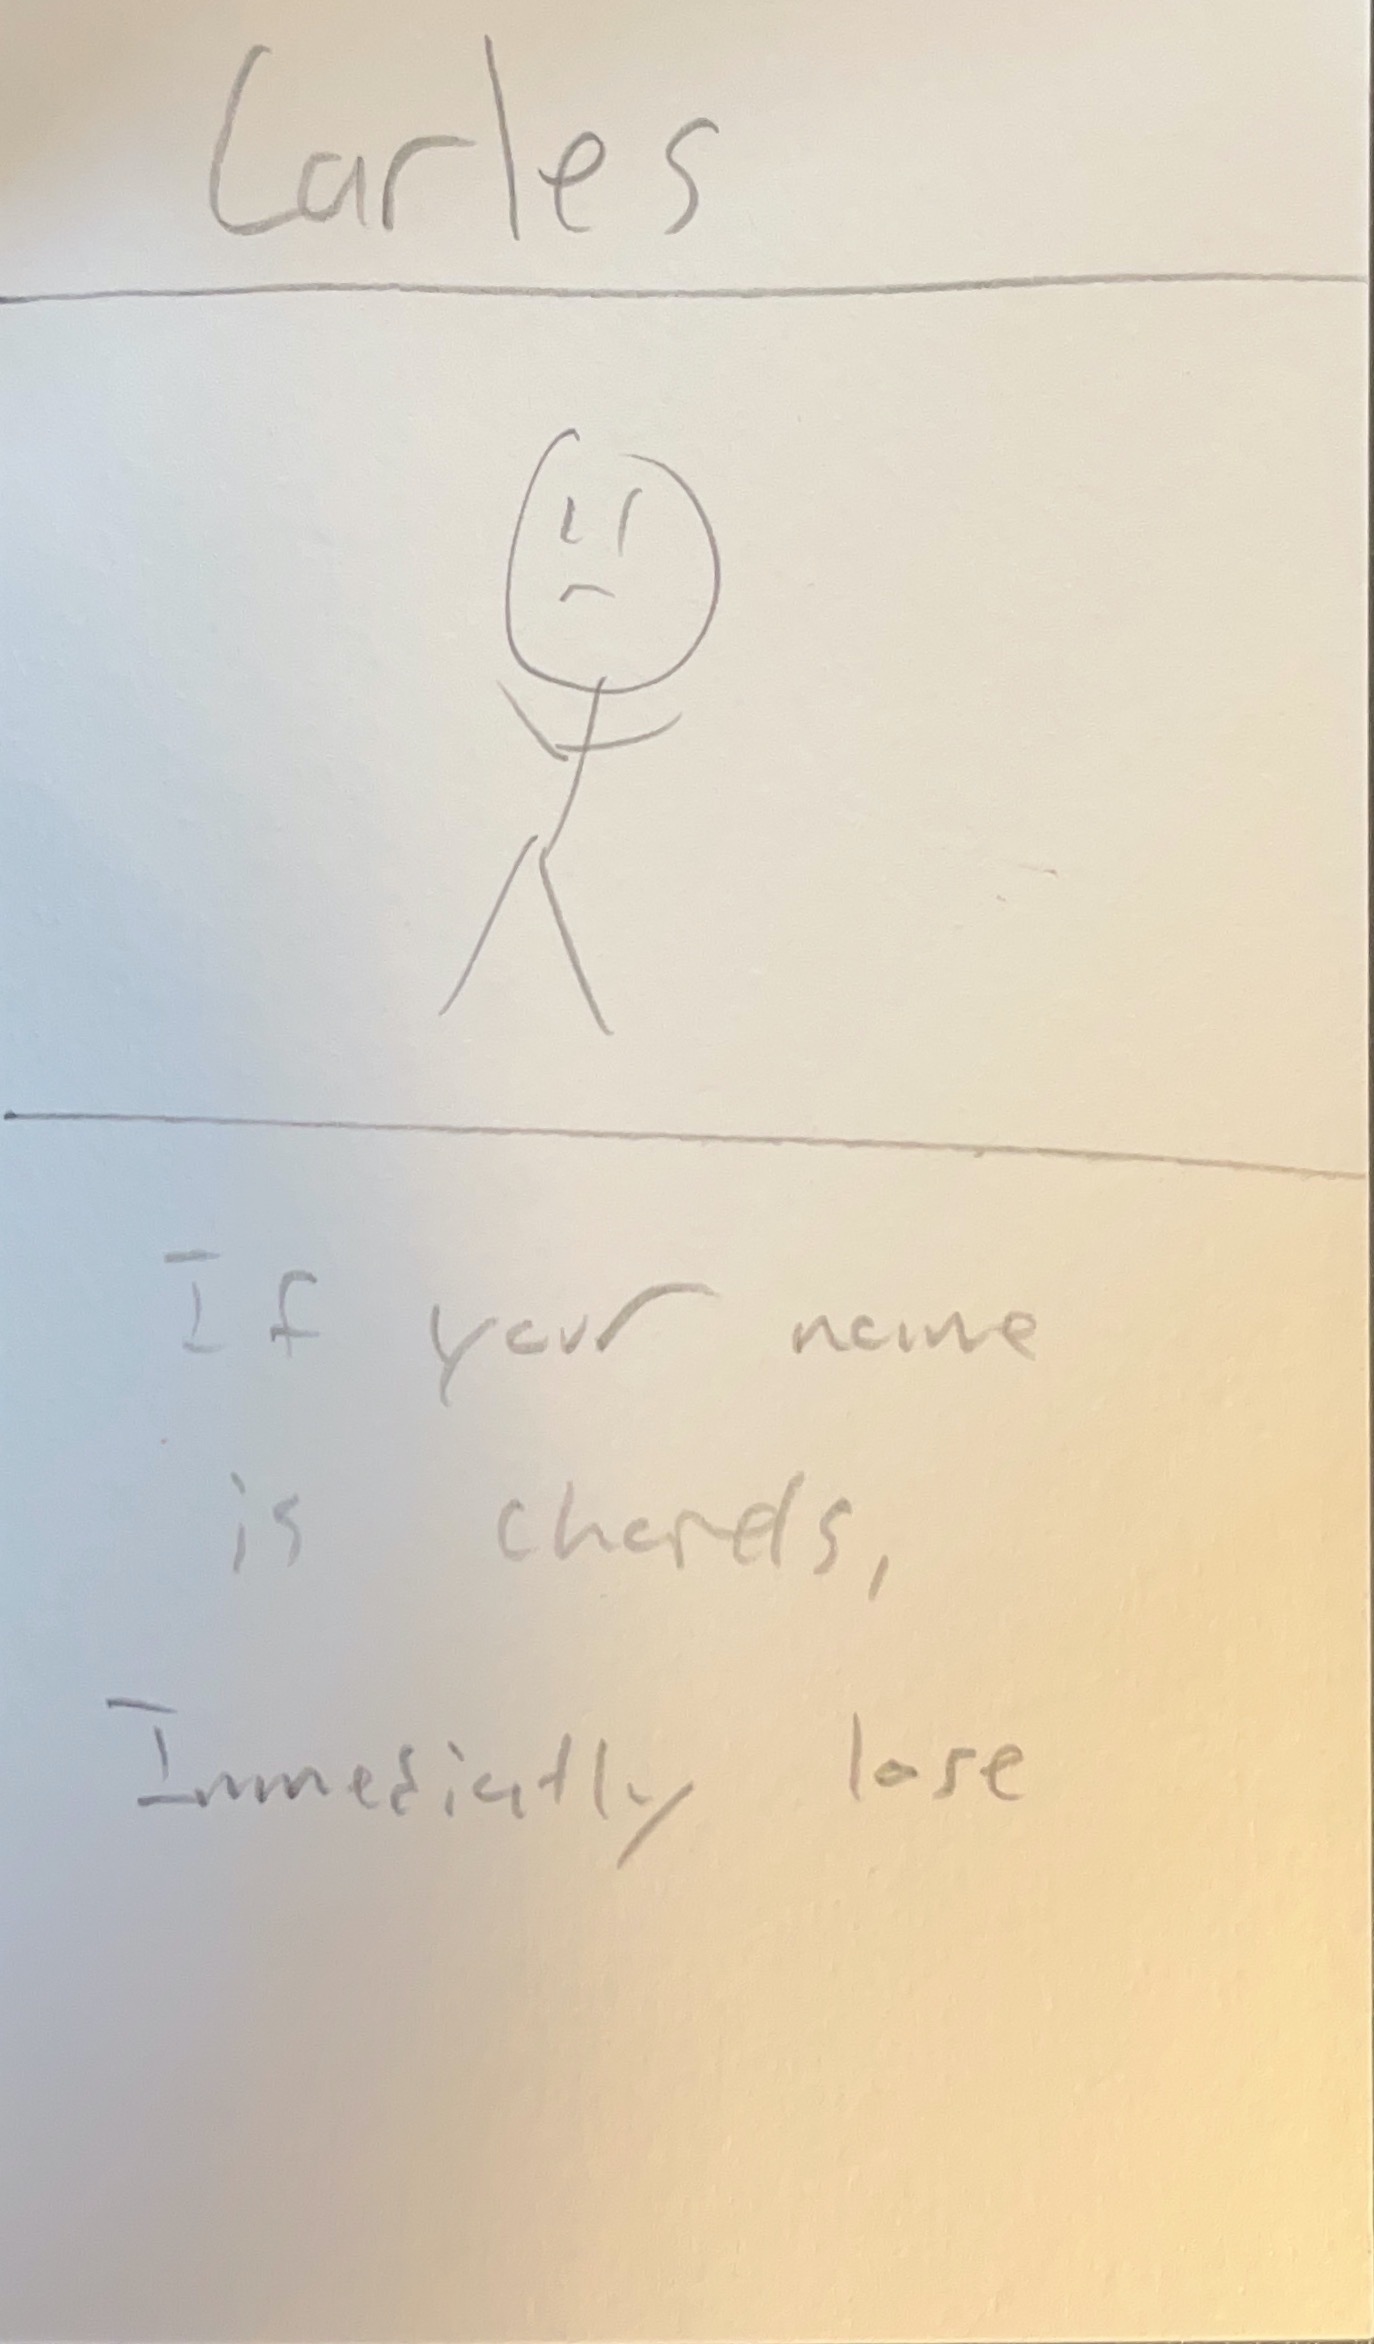 Carles
If your name
is charels,
Immediatly lose